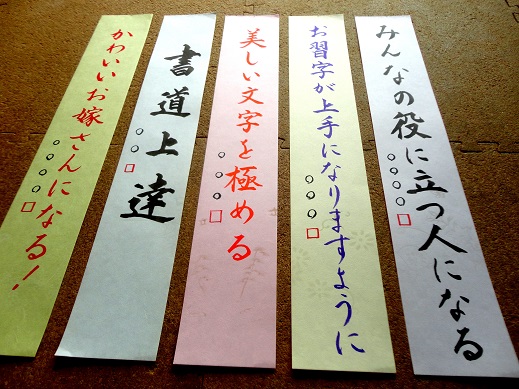 みんなの役に立つ人になる
○○○○□
お習字が上手になりますように
○○○□
美しい文字を極める
○○○○□
書道上達
○○○□
かわいいお嫁さんになる！
○○○○□